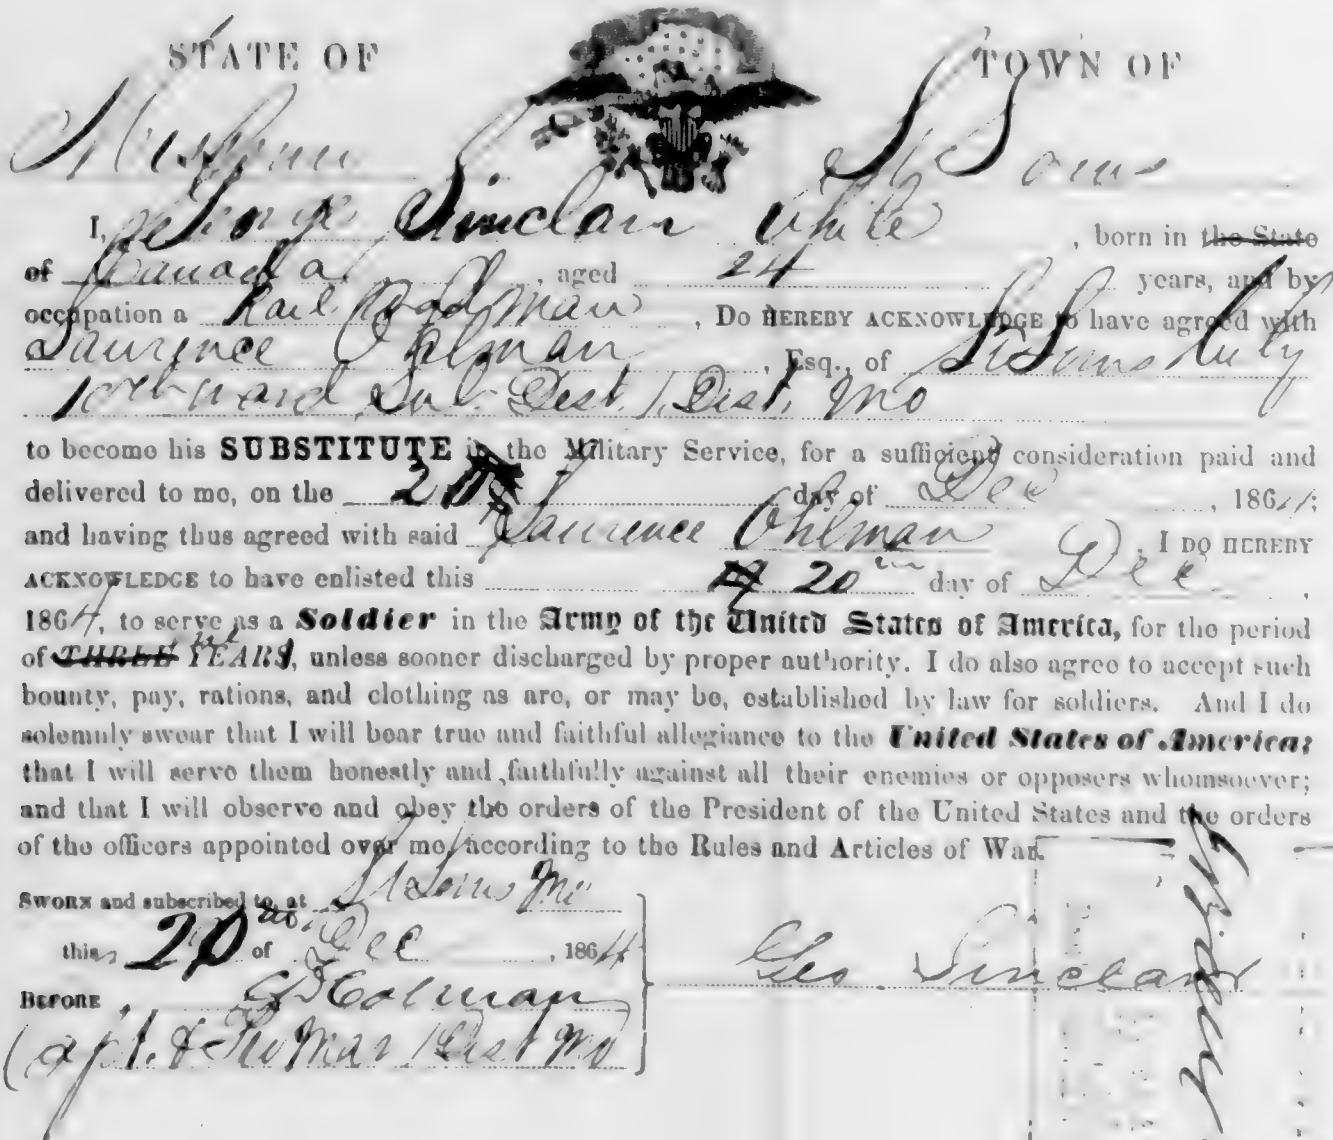 STATE OF
TOWN OF
Missouri
St Louis
I, George Sinclair White, born in the State
of Canada, aged 24 years, and by
occupation a Rail Road Man, Do HEREBY ACKNOWLEDGE to have agreed with
Laurence Ohlman, Esq., of St Louis City
10th Ward Sub. Dist. 1 Dist. Mo
to become his SUBSTITUTE in the Military Service, for a sufficient consideration paid and
delivered to me, on the 20 day of Dec, 1864;
and having thus agreed with said Laurence Ohlman, I DO HEREBY
ACKNOWLEDGE to have enlisted this 20th day of Dec,
1864, to serve as a Soldier in the Army of the United States of America, for the period
of THREE YEARS, unless sooner discharged by proper authority. I do also agree to accept such
bounty, pay, rations, and clothing as are, or may be, established by law for soldiers. And I do
solemnly swear that I will bear true and faithful allegiance to the United States of America;
that I will serve them honestly and faithfully against all their enemies or opposers whomsoever;
and that I will observe and obey the orders of the President of the United States and the orders
of the officers appointed over me, according to the Rules and Articles of War.
SWORN and subscribed to, at St Louis Mo
this 20 of Dec, 1864
Geo. Sinclair
BEFORE Colman
Capt. & Pro Mar 1 Dist Mo